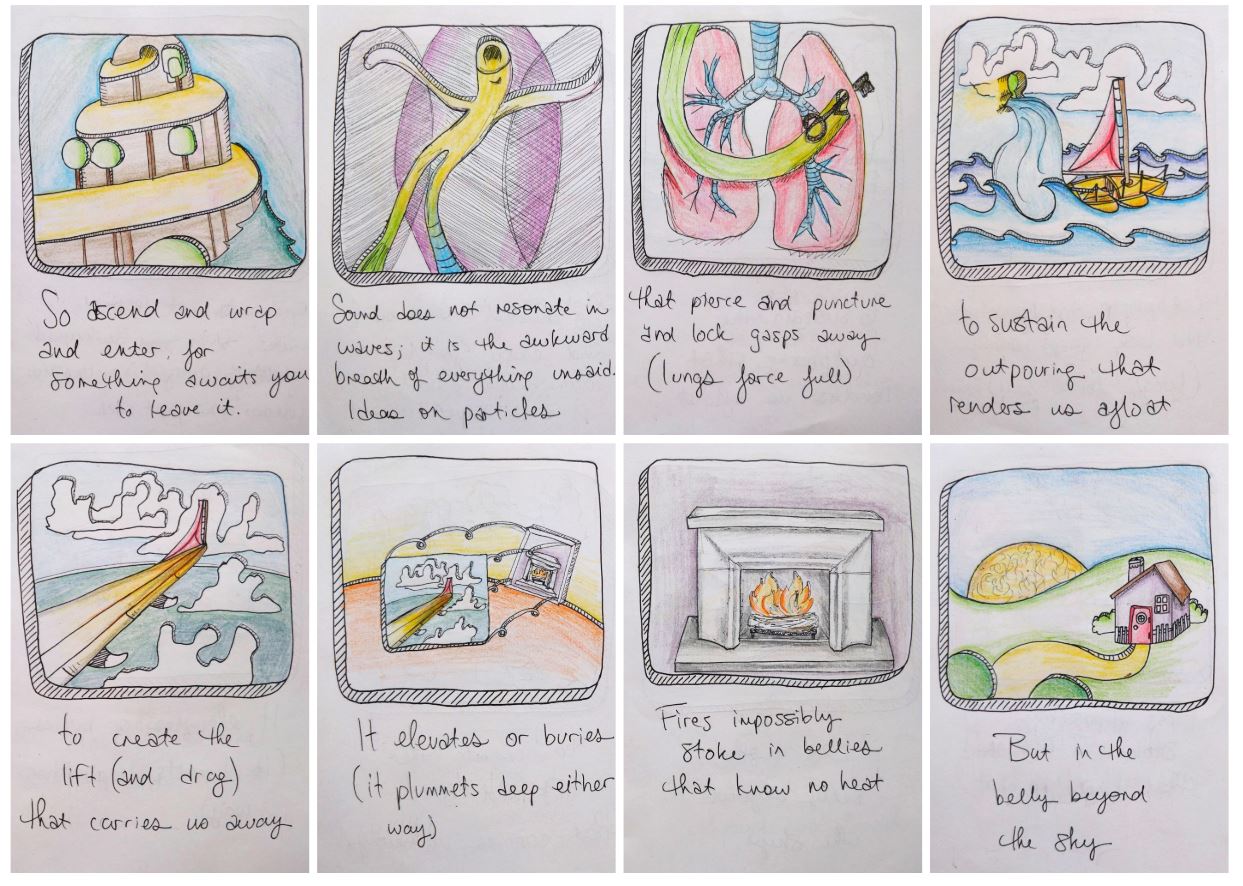 So ascend and wrap
and enter, for
something awaits you
to leave it.
Sound does not resonate in
waves; it is the awkward
breath of everything unsaid.
Ideas on particles
that pierce and puncture
and lock gasps away
(lungs force full)
to sustain the
outpouring that
renders us afloat
to create the
lift (and drag)
that carries us away
It elevates or buries
(it plummets deep either
way)
Fires impossibly
stoke in bellies
that know no heat
But in the
belly beyond
the sky